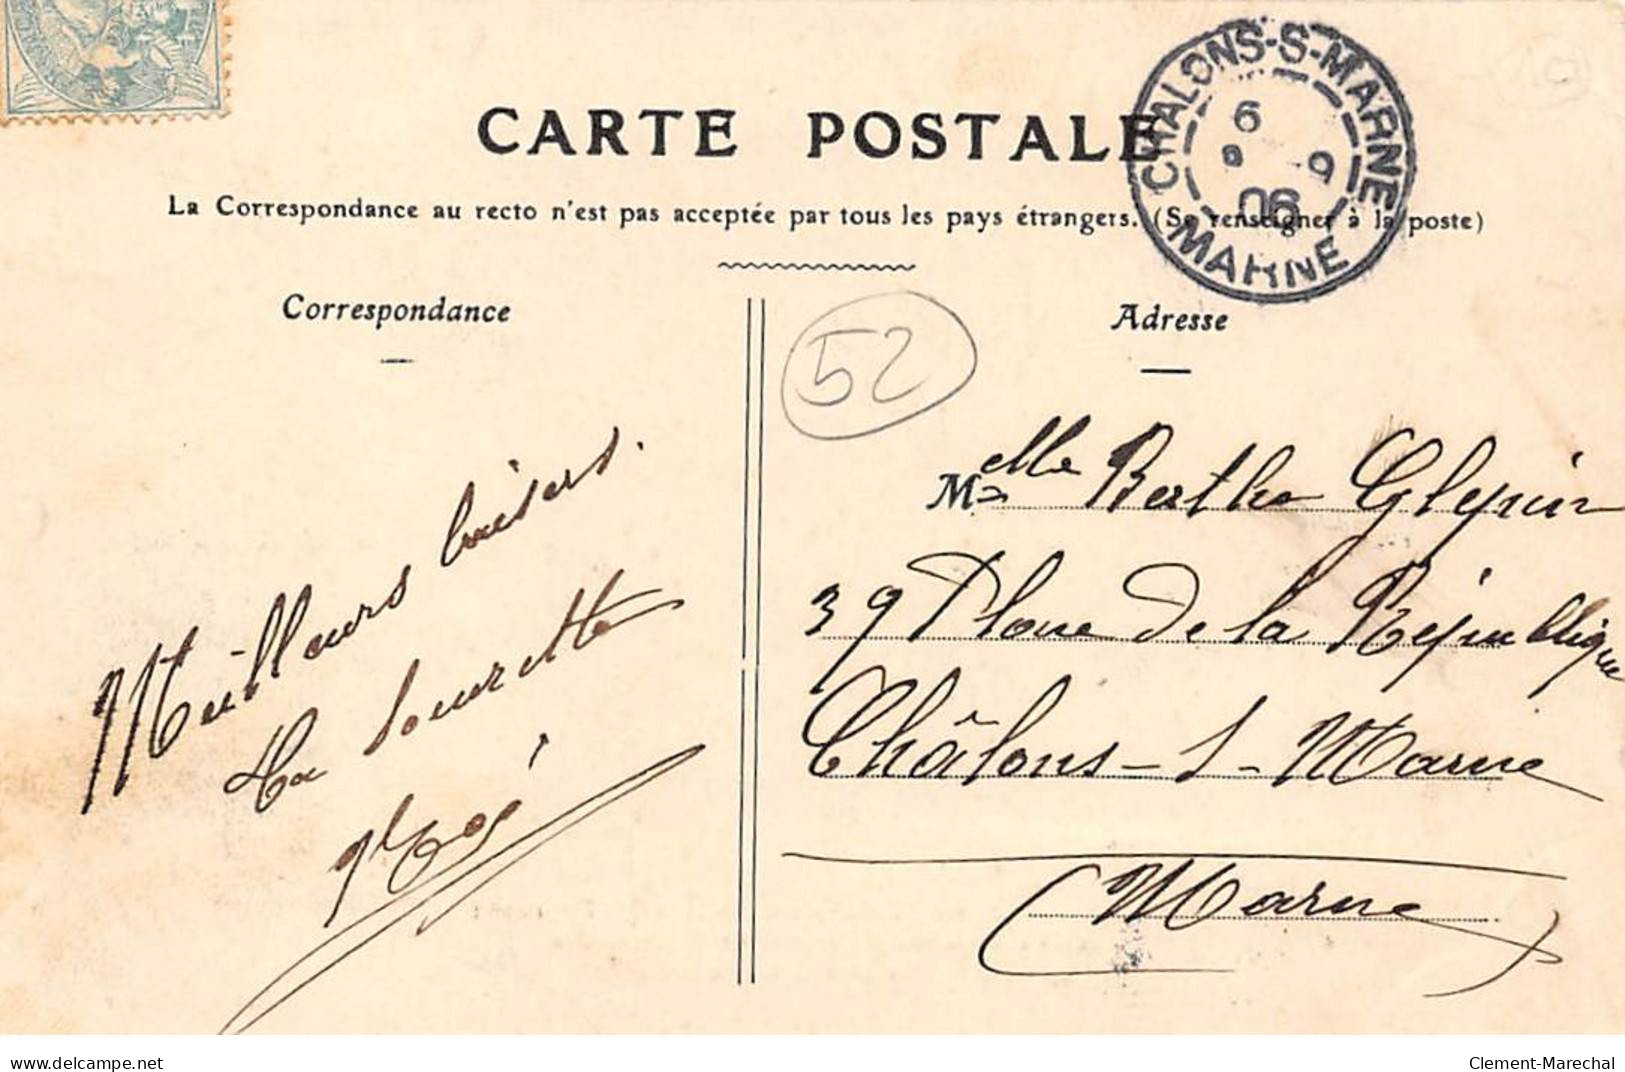 CARTE POSTALE
La Correspondance au recto n'est pas acceptée par tous les pays étrangers. (Se renseigner à la poste)
CHALONS-S-MARNE
6
9
06
MARNE
Correspondance
Adresse
52
Meilleurs baisers.
Ta sourette
Melle Berthe Glepin
39 Place de la République
Châlons-s-Marne
(Marne)
delcampe.net
Clement-Marechal